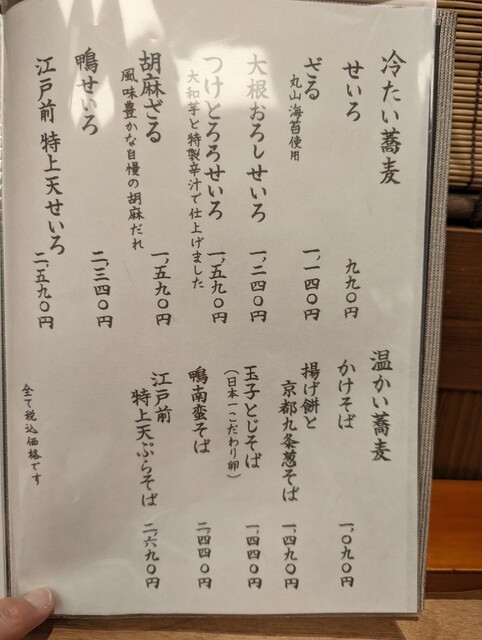 冷たい蕎麦
せいろ 九九〇円
ざる 一、一四〇円
丸山海苔使用
大根おろしせいろ 一、二四〇円
つけとろろせいろ 一、五九〇円
大和芋と特製辛汁で仕上げました
胡麻ざる 一、五九〇円
風味豊かな自慢の胡麻だれ
鴨せいろ 二、三四〇円
江戸前 特上天せいろ 二、五九〇円
温かい蕎麦
かけそば 一、〇九〇円
揚げ餅と
京都九条葱そば 一、四九〇円
玉子とじそば 一、四四〇円
（日本一こだわり卵）
鴨南蛮そば 二、四四〇円
江戸前
特上天ぷらそば 二、六九〇円
全て税込価格です